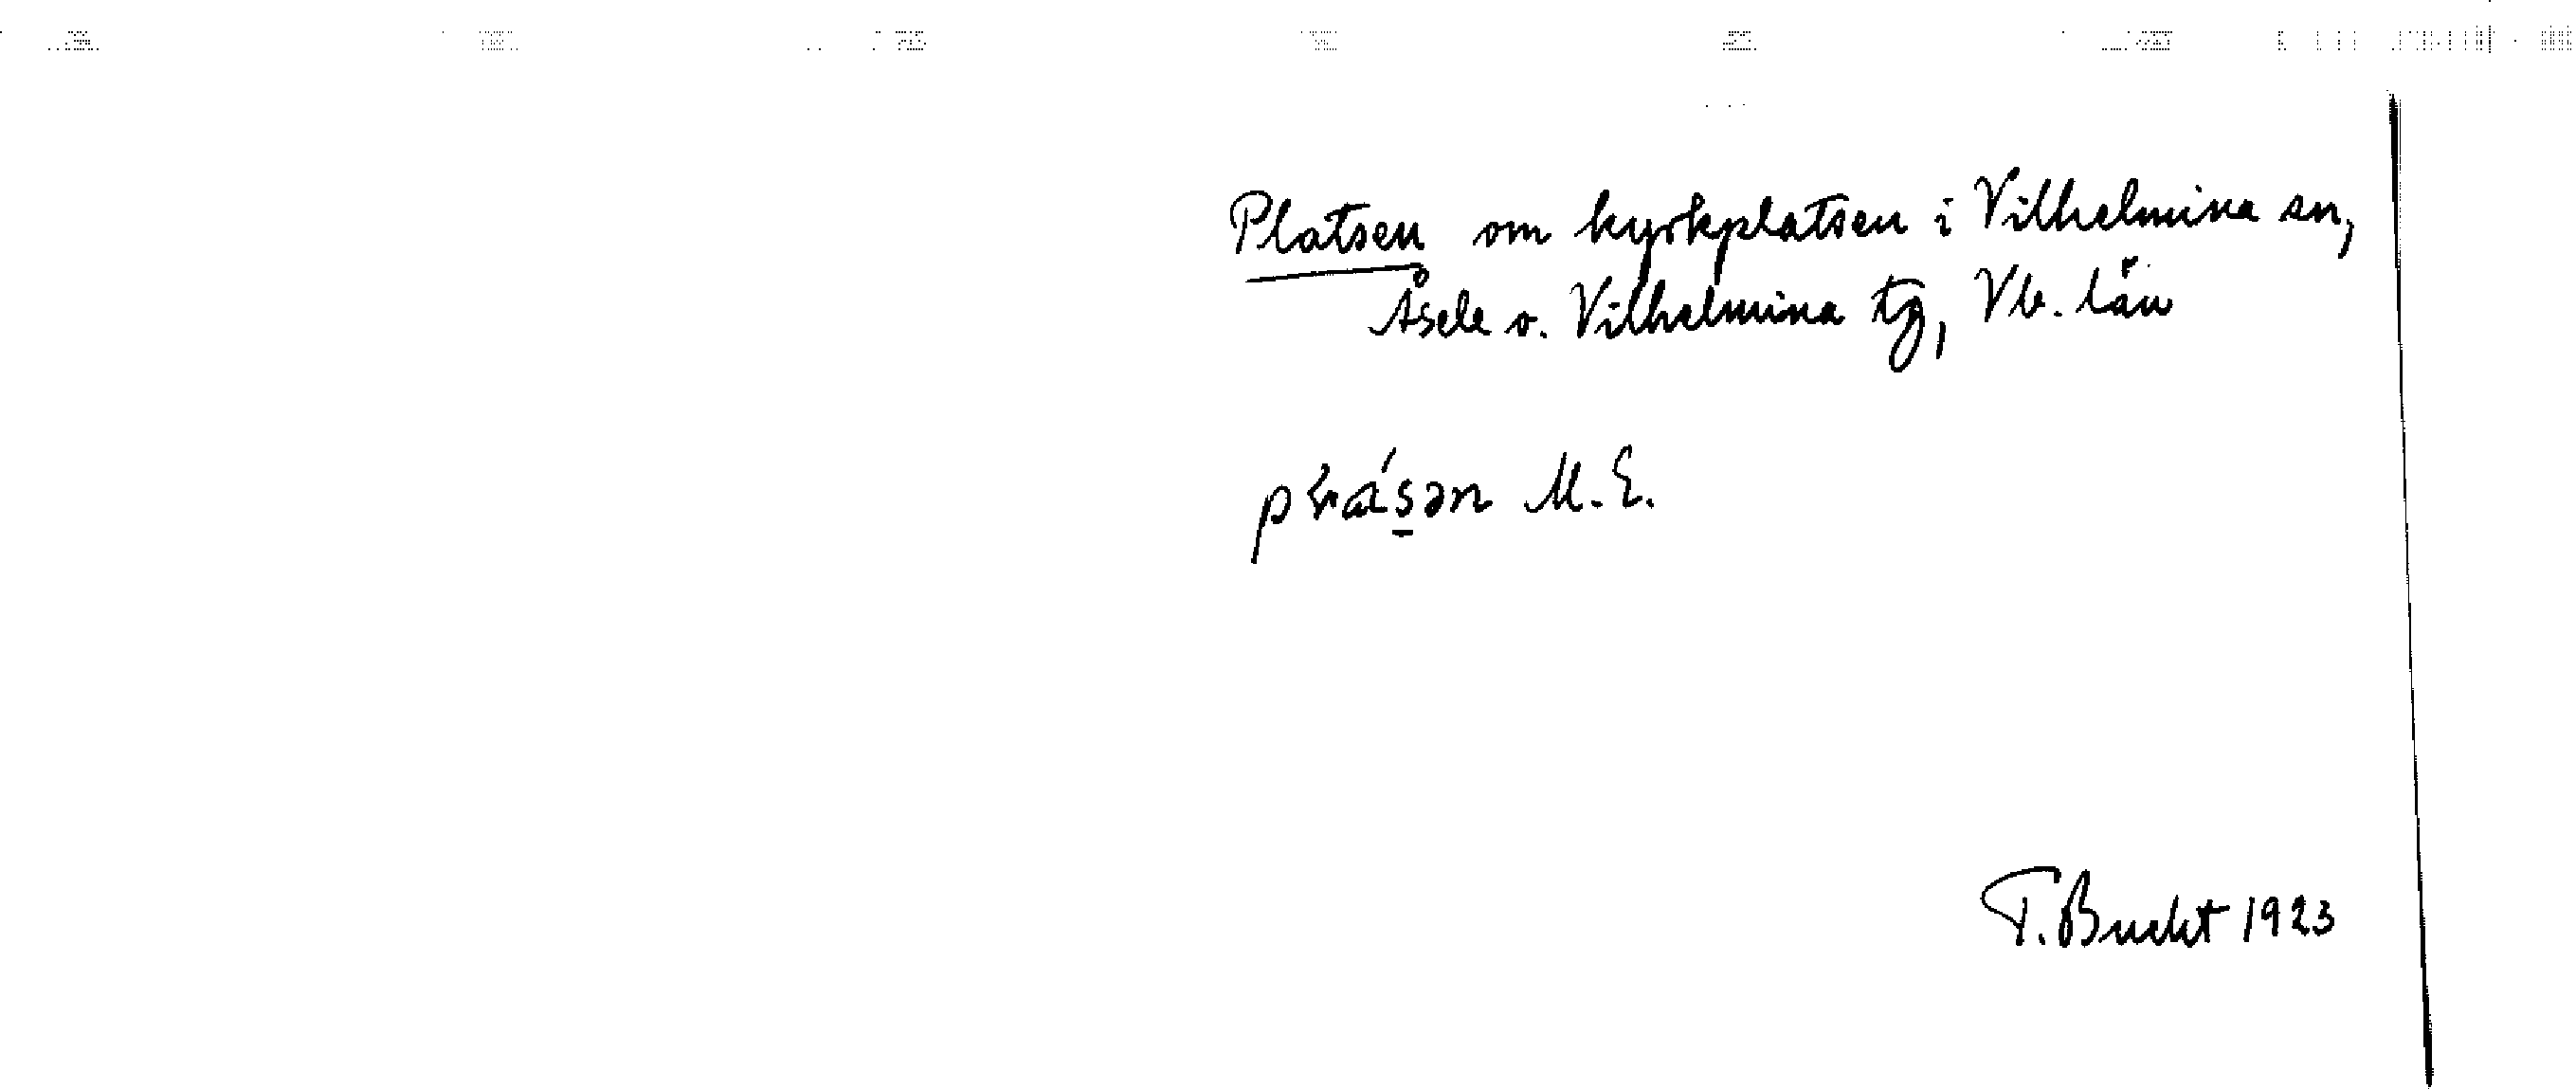 Platsen om kyrkplatsen i Vilhelmina sn,
Åsele o. Vilhelmina tg, Vb. län
M.E.
T. Bucht 1923